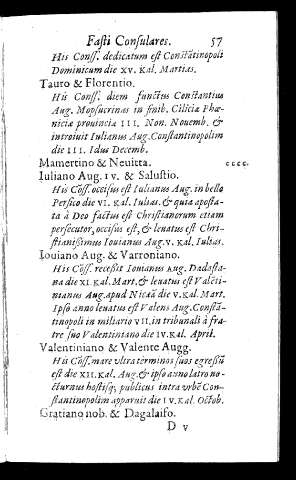 Fasti Consulares. 57
His Conss. dedicatum est Constātinopoli
Dominicum die XV. Kal. Martias.
Tauro & Florentio.
His Conss. diem functus Constantius
Aug. Mopsucrinas in finib. Ciliciæ Phæ-
niciæ prouinciæ III. Non. Nouemb. &
introiuit Iulianus Aug. Constantinopolim
die III. Idus Decemb.
Mamertino & Neuitta. cccc.
Iuliano Aug. IV. & Salustio.
His Cōss. occisus est Iulianus Aug. in bello
Persico die VI. Kal. Iulias. & quia aposta-
ta à Deo factus est Christianorum etiam
persecutor, occisus est, & leuatus est Chri-
stianissimus Iouianus Aug. V. Kal. Iulias.
Iouiano Aug. & Varroniano.
His Cōss. recessit Iouianus Aug. Dadasta-
na die XI. Kal. Mart. & leuatus est Valēti-
nianus Aug. apud Nicæā die V. Kal. Mart.
Ipso anno leuatus est Valens Aug. Constā-
tinopoli in miliario VII. in tribunali à fra-
tre suo Valentiniano die IV. Kal. April.
Valentiniano & Valente Augg.
His Cōss. mare vltra terminos suos egressū
est die XII. Kal. Aug. & ipso anno latro no-
cturnus hostisq; publicus intra vrbē Con-
stantinopolim apparuit die IV. Kal. Octob.
Gratiano nob. & Dagalaifo.
D v